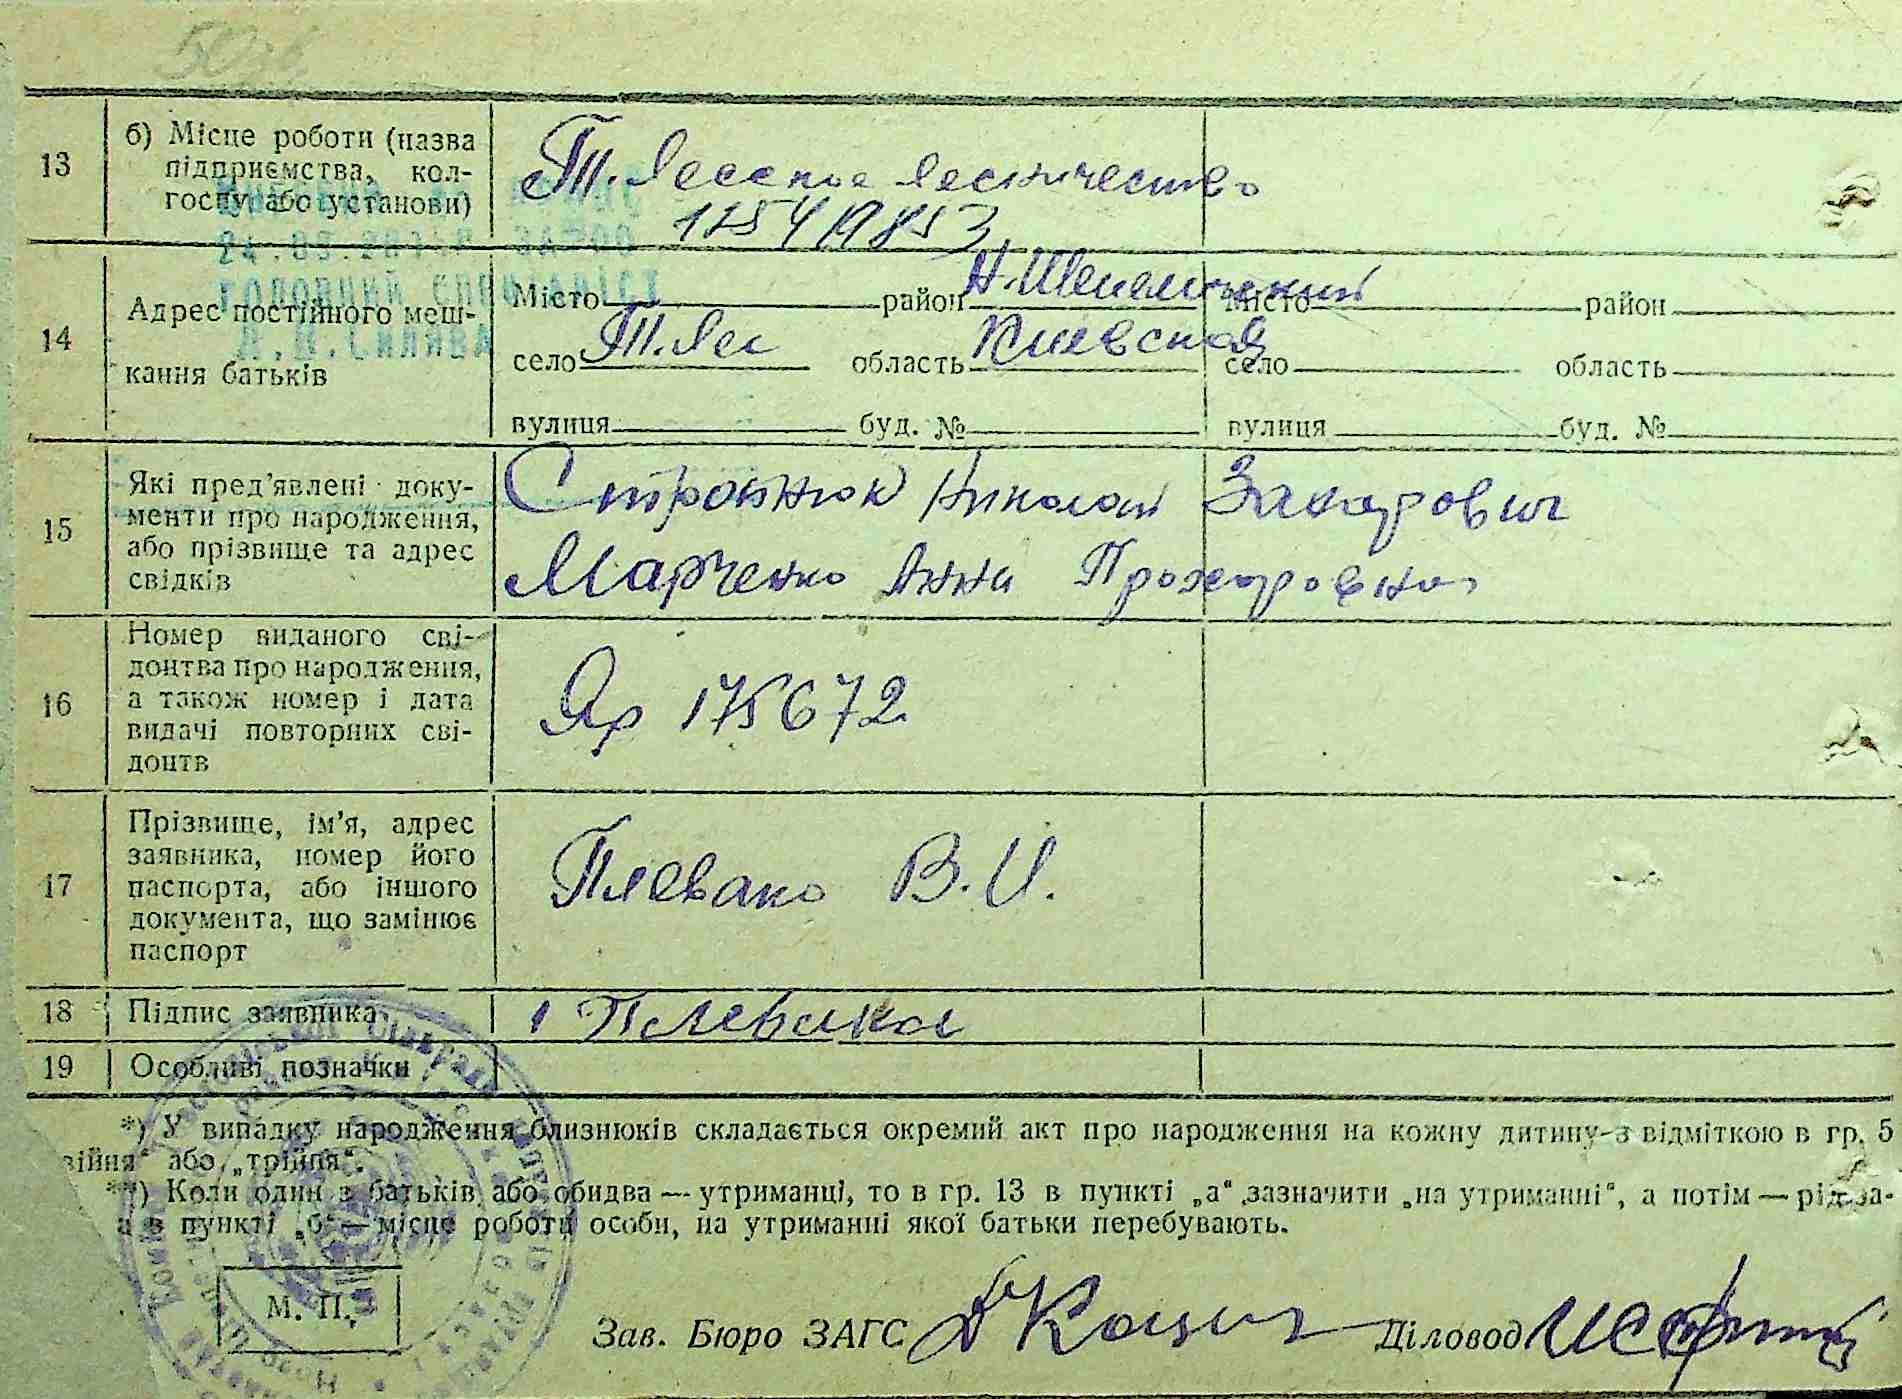 13
б) Місце роботи (назва
підприємства, кол-
госпу або установи)
Т. Лесское лесничество
14
Адрес постійного меш-
кання батьків
Місто район Н. Шепеличский
село Т. Лес область Киевская
вулиця буд. №
місто район
село область
вулиця буд. №
15
Які пред’явлені доку-
менти про народження,
або прізвище та адрес
свідків
Николай Захарович
Марченко Анна Прохоровна
16
Номер виданого сві-
доцтва про народження,
а також номер і дата
видачі повторних сві-
доцтв
175672
17
Прізвище, ім’я, адрес
заявника, номер його
паспорта, або іншого
документа, що замінює
паспорт
Плевако В. И.
18
Підпис заявника
Плевака
19
Особливі позначки
*) У випадку народження близнюків складається окремий акт про народження на кожну дитину з відміткою в гр. 5
війня“ або „трійня“.
**) Коли один з батьків або обидва — утриманці, то в гр. 13 в пункті „а“ зазначити „на утриманні“, а потім — рід за-
а в пункті „б“ — місце роботи особи, на утриманні якої батьки перебувають.
М. П.
Зав. Бюро ЗАГС
Діловод